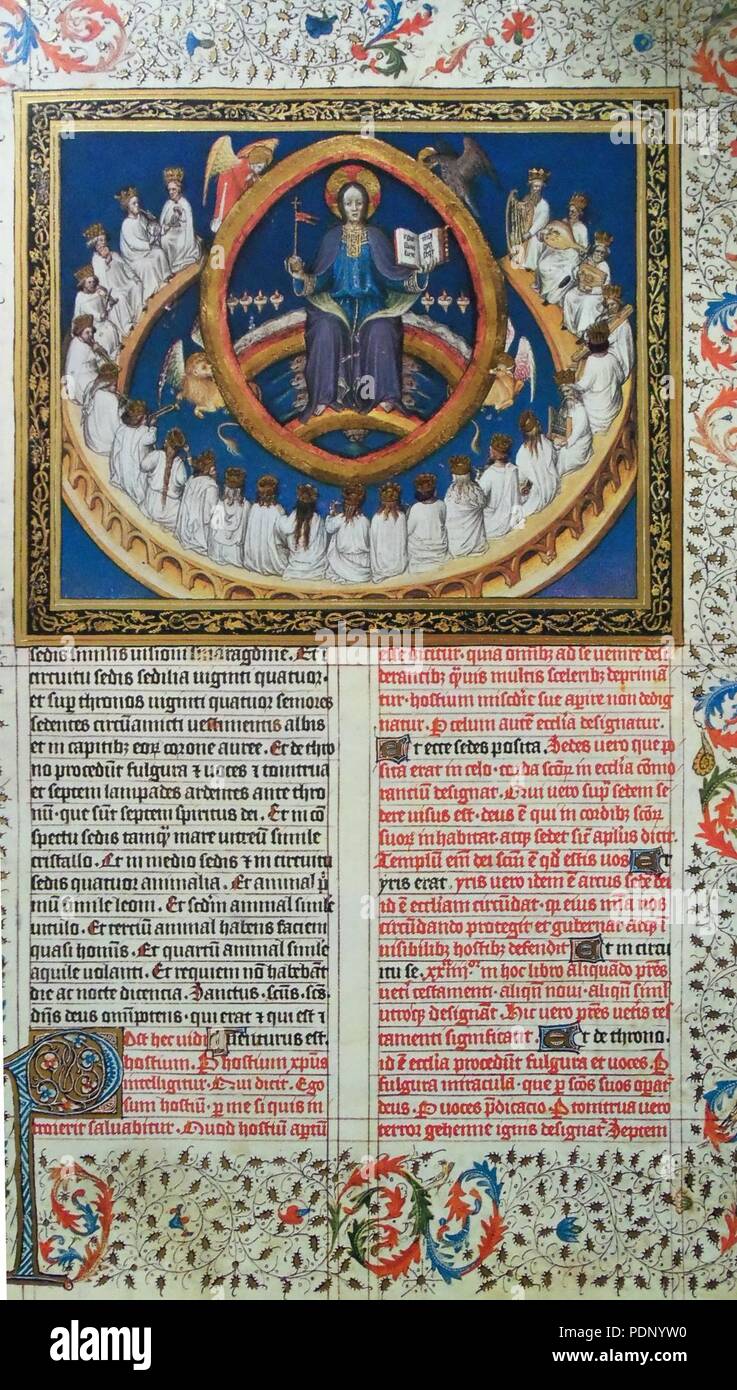 sedis similis visioni smaragdine. Et i
circuitu sedis sedilia viginti quatuor.
et sup thronos viginti quatuor seniores
sedentes circūamicti vestimentis albis
et in capitibz eorz corone auree. Et de thro
no procedūt fulgura ⁊ voces ⁊ tonitrua
et septem lampades ardentes ante thro
num. que sunt septem spiritus dei. Et in cō
spectu sedis tamqz mare vitreū simile
cristallo. Et in medio sedis ⁊ in circuitu
sedis quatuor animalia. Et animal p̄
mū simile leoni. Et scdm animal simile
vitulo. Et tercium animal habens faciem
quasi hominis. Et quartū animal simile
aquile volanti. Et requiem nō habebāt
die ac nocte dicencia. Sanctus. scūs. scs.
dn̄s deus omīpotens. qui erat ⁊ qui est ⁊
Post hec vidi venturus est.
hostium. P hostium xp̄us
intelligitur. Qui dicit. Ego
sum hostiū. per me si quis in
troierit salvabitur. Quod hostiū aptū
esse dicitur. quia omībz ad se venire desi
derantibz qūis multis sceleribz deprima
tur. hostium misc̄die sue apire non dedig
natur. P celum autē ecclīa designatur.
Et ecce sedes posita. Sedes vero que po
sita erat in celo. corda scōrz in ecclīa cōmo
rancium designat. Qui vero supra sedem se
dere visus est. deus ē qui in cordibz scōrz
suorz inhabitat. atqz sedet sic̄ apl̄us dicit.
Templū em̄ dei scm̄ ē qd̄ estis vos Et
yris erat. yris vero idem ē arcus sede dei
id ē ecclīam circūdat. qz eius mīa nos
circūdando protegit et gubernat atqz i
visibilibz hostibz defendit Et in circu
itu se. xxiiiior. in hoc libro aliquādo pr̄es
veti testamenti. aliqn̄ novi. aliqn̄ simul
utrosqz designāt. Hic vero pr̄es vetis tes
tamenti significat. Et de throno.
id ē ecclīa procedūt fulgura et voces. P
fulgura miracula. que p scōs suos opat
deus. P voces p̄dicacio. P tonitrua vero
terror gehenne ignis designat. Septem
alamy
Image ID: PDNYW0
www.alamy.com